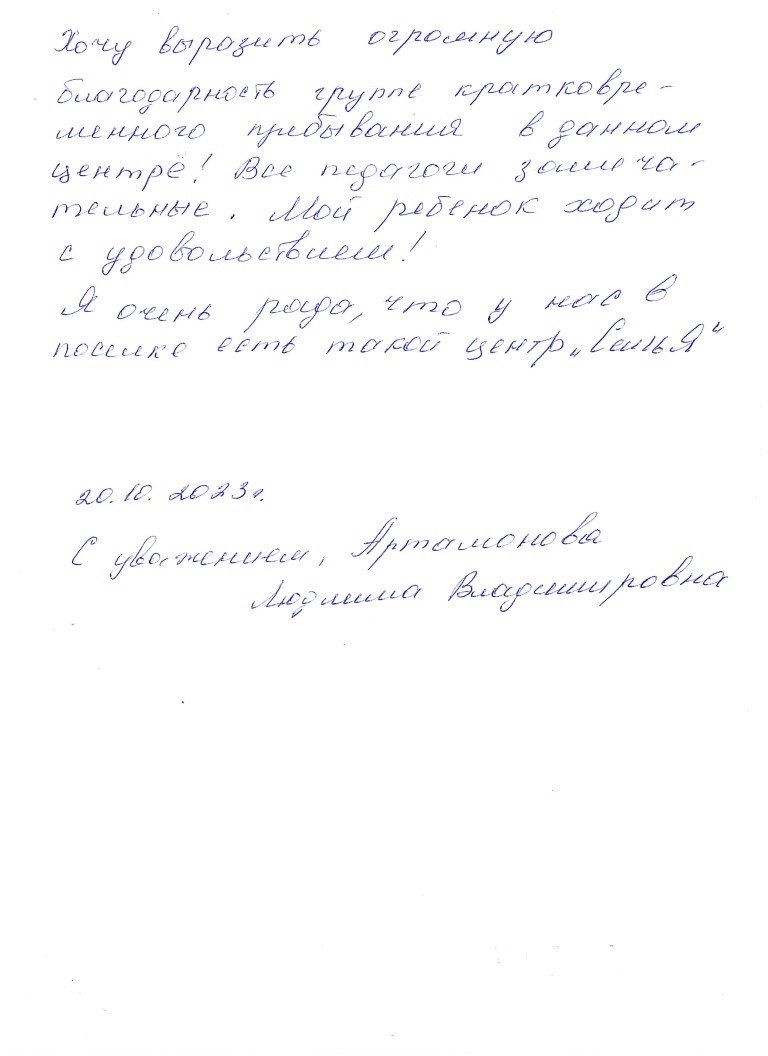 Хочу выразить огромную
благодарность группе кратковре-
менного пребывания в данном
центре! Все педагоги замеча-
тельные. Мой ребенок ходит
с удовольствием!
Я очень рада, что у нас в
поселке есть такой центр „СемьЯ“
20.10.2023г.
С уважением, Артамонова
Людмила Владимировна